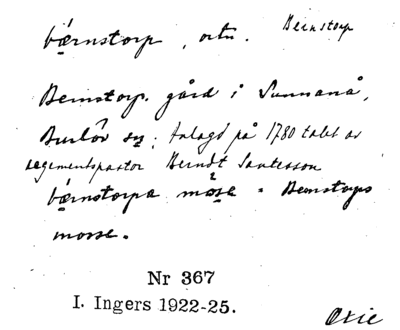 bærnstorp, ortn. Bernstorp
Bernstorp. gård i Sunnanå,
Burlöv sn; Anlagd på 1780 talet av
regementspastor Berndt Santesson
bærnstorpa måse = Bernstorps
mosse.
Nr 367
I. Ingers 1922-25.
Oxie